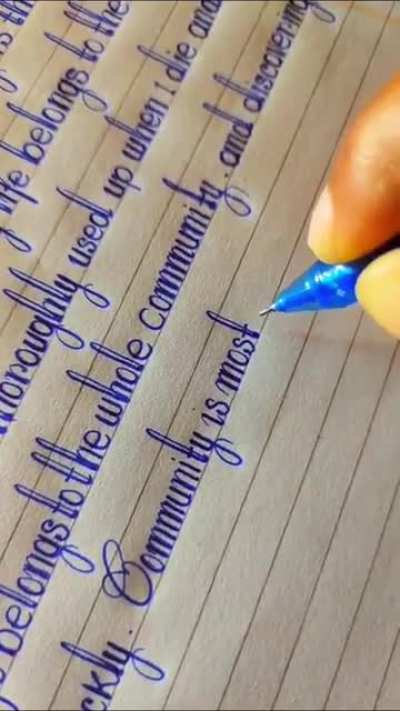 s th
life belongs to the
horoughly used up when i die and
belongs to the whole community, and discovering
ckly. Community is most